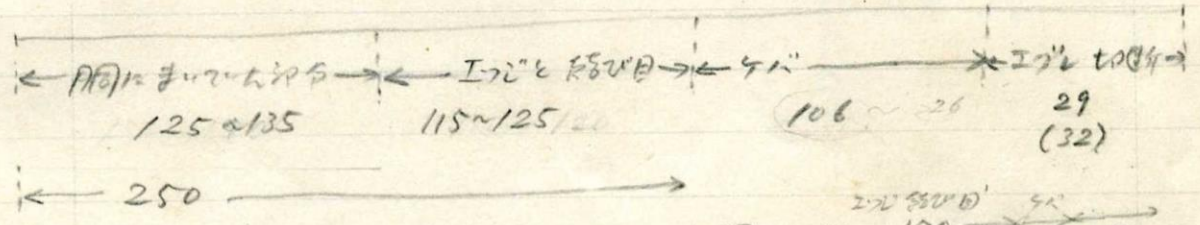 胴にまいていた部分 エつじと結び目 ケバ エブレ切断
125~135 115~125 106 ~ 26 29
(32)
250
エつじ結び目 ケバ